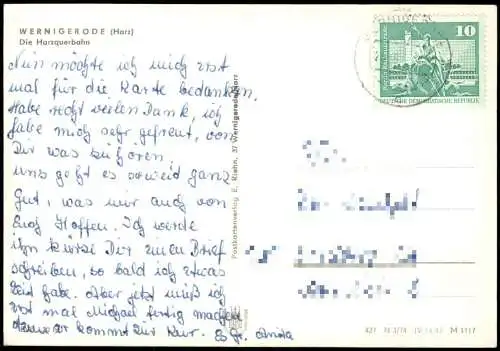 WERNIGERODE (Harz)
Die Harzquerbahn
Nun möchte ich mich erst
mal für die Karte bedanken.
Habe recht vielen Dank, ich
habe mich sehr gefreut, von
Dir was zu hören.
uns geht es soweit ganz
Gut, was wir auch von
Euch Hoffen. Ich werde
in kürze Dir einen Brief
schreiben, so bald ich etwas
Zeit habe. Aber jetzt muß ich
erst mal Michael fertig machen
denn er kommt zur Kur. Es Gr.
Postkartenverlag E. Riehn, 37 Wernigerode/Harz
10
DEUTSCHE DEMOKRATISCHE REPUBLIK
421 N 3/74 M 1117